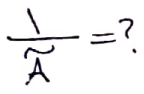 \frac{1}{\tilde{A}} = ?